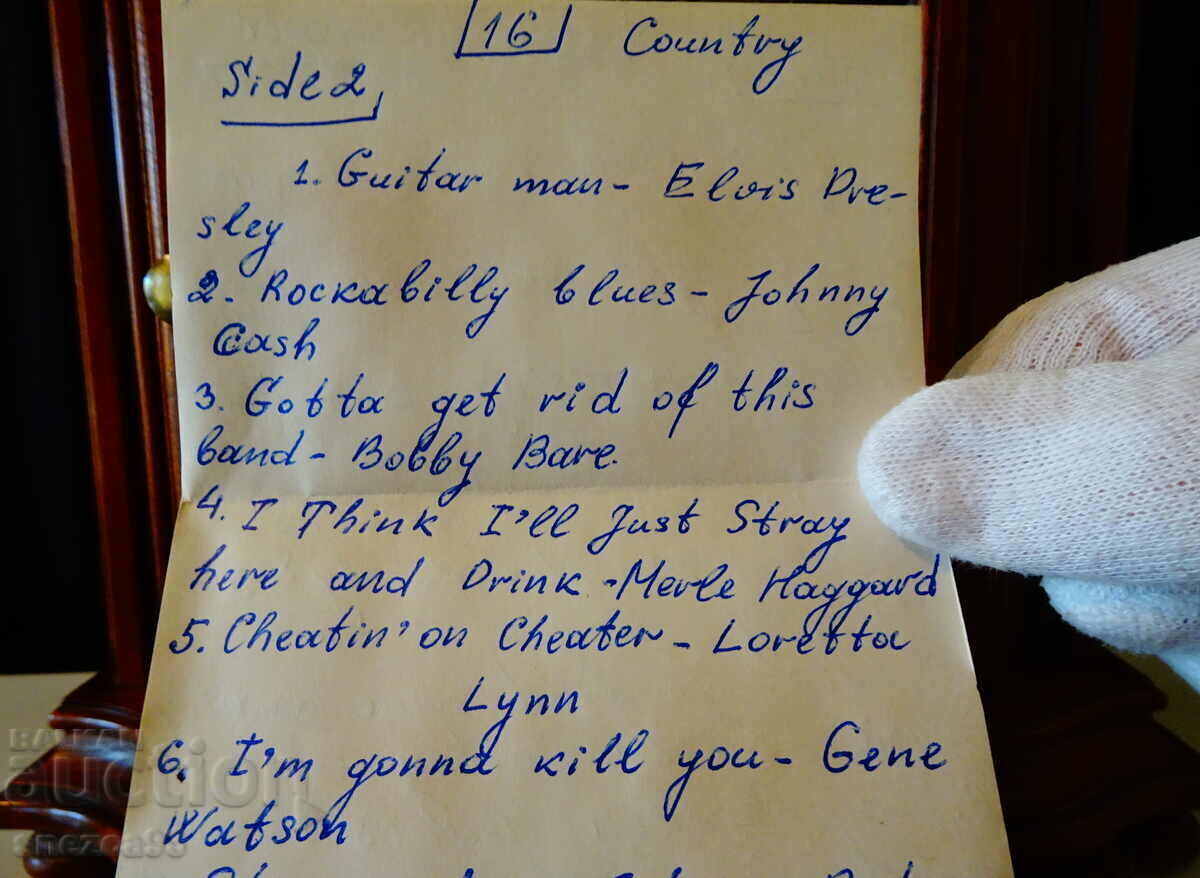 16 Country
Side 2,
1. Guitar man - Elvis Pre-
sley
2. Rockabilly blues - Johnny
Cash
3. Gotta get rid of this
band - Bobby Bare.
4. I Think I'll Just Stray
here and Drink - Merle Haggard
5. Cheatin' on Cheater - Loretta
Lynn
6. I'm gonna kill you - Gene
Watson
BALKAN
auction
snezca98